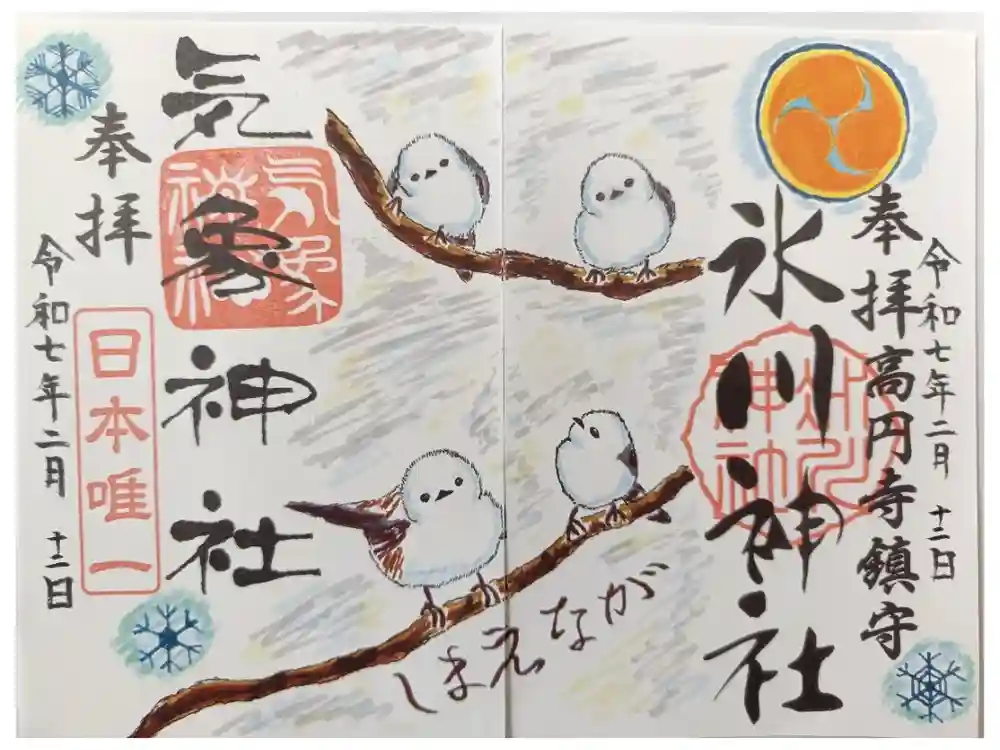 奉拝高円寺鎮守
令和七年二月十二日
氷川神社
しまえなが
気象神社
気象
神社
奉拝
日本唯一
令和七年二月十二日